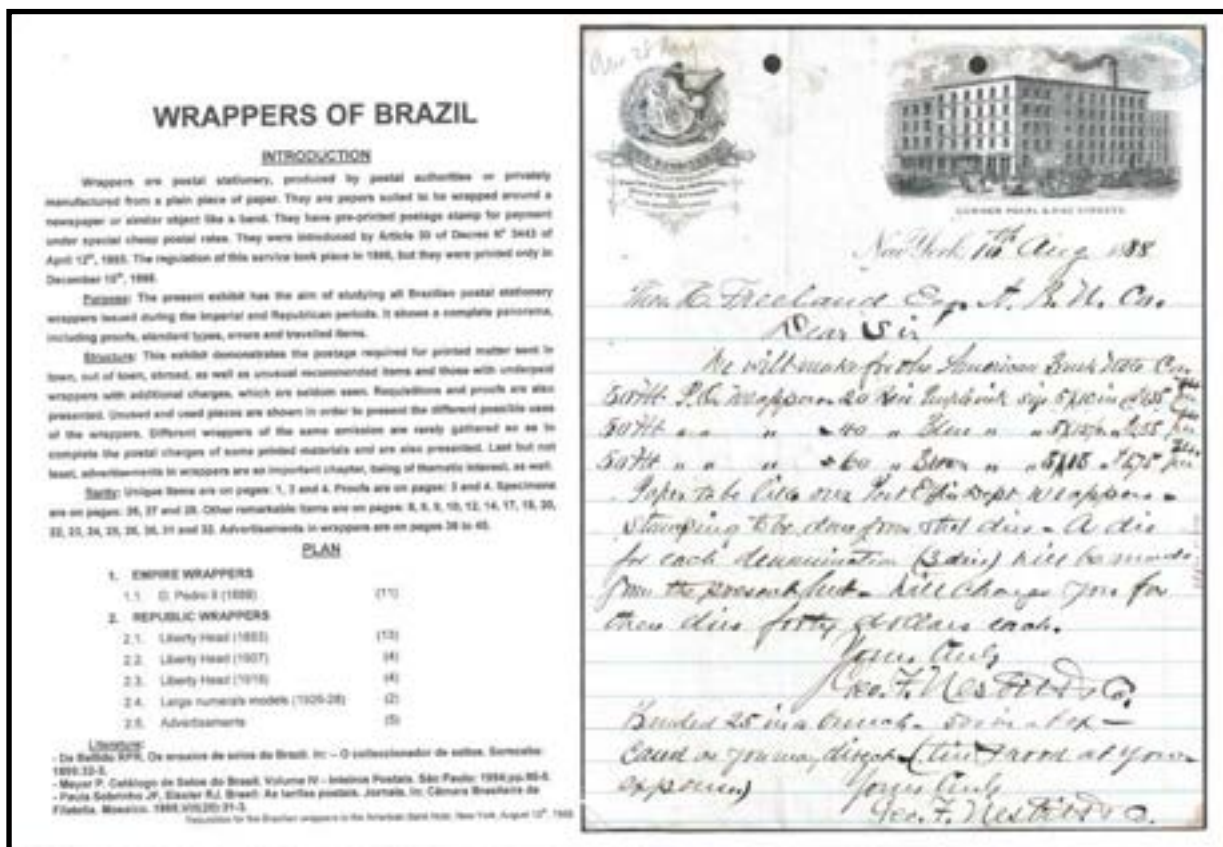 WRAPPERS OF BRAZIL
INTRODUCTION
Wrappers are postal stationery, produced by postal authorities or privately
manufactured from a plain piece of paper. They are papers suited to be wrapped around a
newspaper or similar object like a band. They have pre-printed postage stamp for payment
under special cheap postal rates. They were introduced by Article of Decree Nº 3443 of
April 12th, The regulation of this service took place in but they were printed only in
December
Purpose: The present exhibit has the aim of studying all Brazilian postal stationery
wrappers issued during the Imperial and Republican periods. It shows a complete panorama,
including proofs, standard types, errors and travelled items.
Structure: This exhibit demonstrates the postage required for printed matter sent in
town, out of town, abroad, as well as unusual recommended items and those with underpaid
wrappers with additional charges, which are seldom seen. Requisitions and proofs are also
presented. Unused and used pieces are shown in order to present the different possible uses
of the wrappers. Different wrappers of the same emission are rarely gathered so as to
complete the postal charges of some printed materials and are also presented. Last but not
least, advertisements in wrappers are so important chapter, being of thematic interest, as well.
Rarity: Unique items are on pages: 1, 3 and 4. Proofs are on pages: 3 and 4. Specimens
are on pages: 26, 27 and 28. Other remarkable items are on pages: 10, 12, 14, 17,
31 and Advertisements in wrappers are on pages to
PLAN
1. EMPIRE WRAPPERS
1.1. D. Pedro II (1889) (11)
2. REPUBLIC WRAPPERS
2.1. Liberty Head (1893) (13)
2.2. Liberty Head (1907) (4)
2.3. Liberty Head (4)
2.4. Large numerals models (1926-28) (2)
2.5. Advertisements (5)
Literature:
- De Bellido RPR. Os ensaios de selos do Brazil. In: – O colleccionador de sellos. Sorocaba:
- Meyer P. Catálogo de Selos do Brasil. Volume IV – Inteiros Postais. São Paulo:
- Paula Sobrinho JF, RJ. Brasil: As tarifas postais. Jornais. In: Câmara Brasileira de
Filatelia. Mosaico.
Requisition for the Brazilian wrappers to the American Bank Note, New York, August
CORNER PEARL & PINE STREETS
New York, Aug 1888
Freeland Esq. A. B. N. Co.
Dear Sir
We will make for the American Bank Note Co
P.O. Wrappers 20 Reis size 5x10 in
40 Blue
60 Brown
Paper to be like our Post Office Dept wrappers
Stamping to be done from steel dies. A die
for each denomination (3 dies) will be made
from the present will charge you for
these dies forty dollars each.
Yours truly
Geo. F. Nesbitt & Co.
Banded 25 in a bunch. 500 in a box
cased as you may direct (tin & wood at your
expense)
Yours truly
Geo. F. Nesbitt & Co.